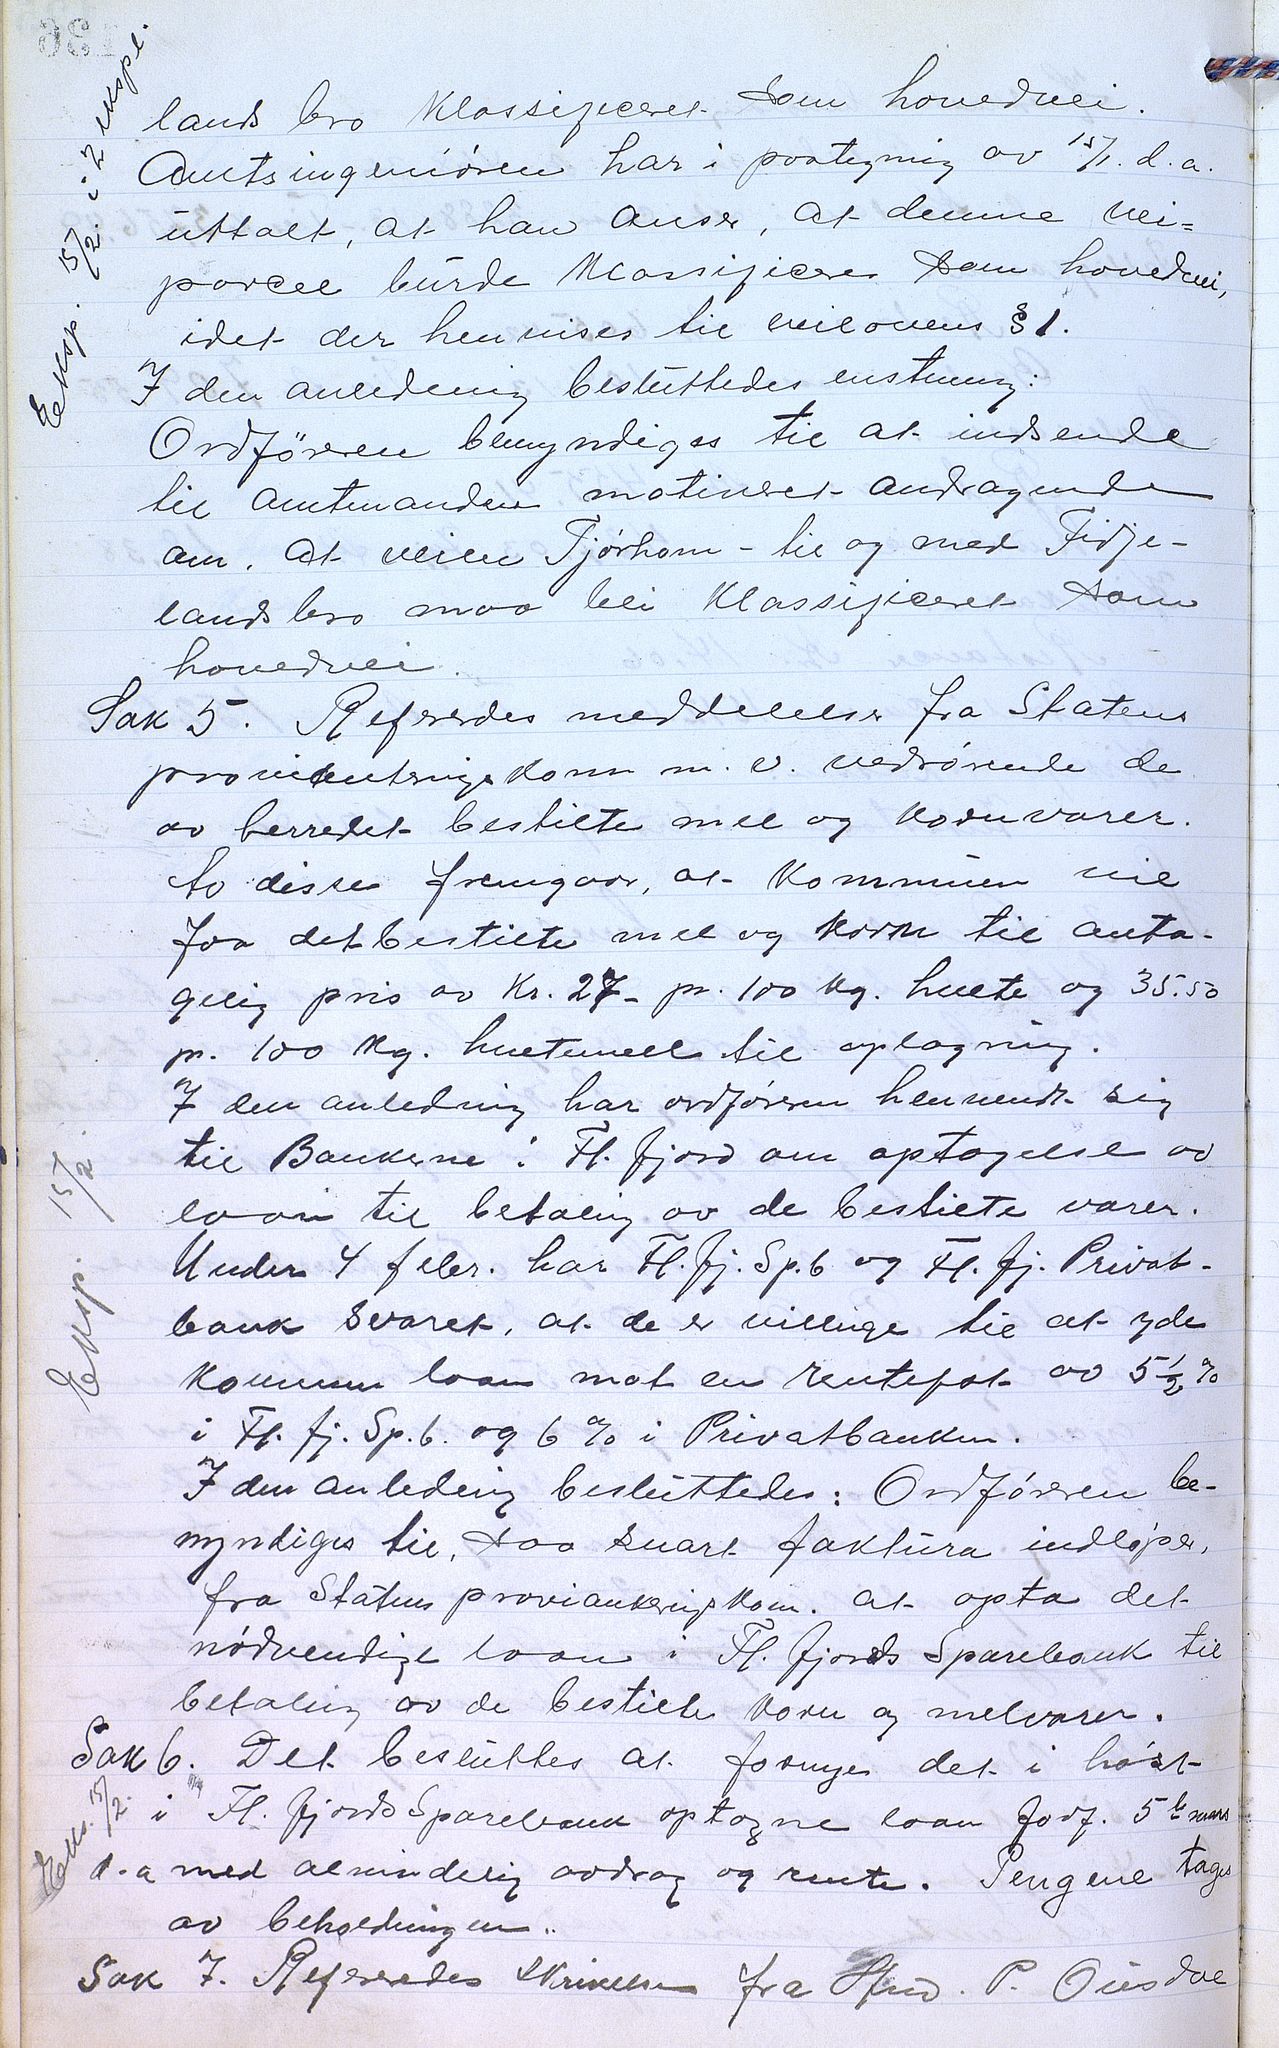 Eksp. 15/2. i 2 expl.
lands bro klassificeret som hovedvei.
Amtsingeniøren har i paategning av 15/1. d.a.
uttalt, at han anser, at denne vei-
parcel burde klassificeres som hovedvei,
idet der henvises til veilovens § 1.
I den anledning besluttedes enstemmig:
Ordføreren bemyndiges til at indsende
til amtmanden motiveret andragende
om, at veien Tjørhom - til og med Fidje-
landsbro maa bli klassificeret som
hovedvei.
Sak 5. Refereredes meddelelse fra Statens
provianteringskom m.v. vedrørende de
av herredet bestilte mel og kornvarer.
Av disse fremgaar, at kommunen vil
faa det bestilte mel og korn til anta-
gelig pris av kr. 27- pr. 100 kg. hvete og 35.50
pr. 100 kg. hvetemel til oplagring.
I den anledning har ordføreren henvendt sig
til Bankerne i Fl.fjord om optagelse av
laan til betaling av de bestilte varer.
Eksp. 15/2.
Under 4 febr. har Fl.fj. Sp.b og Fl.fj. Privat-
bank svaret, at de er villige til at yde
kommunen laan mot en rentefot av 5 1/2 %
i Fl. fj. Sp.b. og 6 % i Privatbanken.
I den anledning besluttedes: Ordføreren be-
myndiges til, saa snart faktura indløper,
fra Statens provianteringskom. at opta det
nødvendige laan i Fl. fjords Sparebank til
betaling av de bestilte korn og melvarer.
Sak 6. Det besluttes at fornye det i høst
Eks. 15/2.
i Fl. fjords Sparebank optagne laan forf. 5te mars
d.a med almindelig avdrag og rente. Pengene tages
av beholdningen.
Sak 7. Refereredes skrivelse fra Hr. P. Ousdal